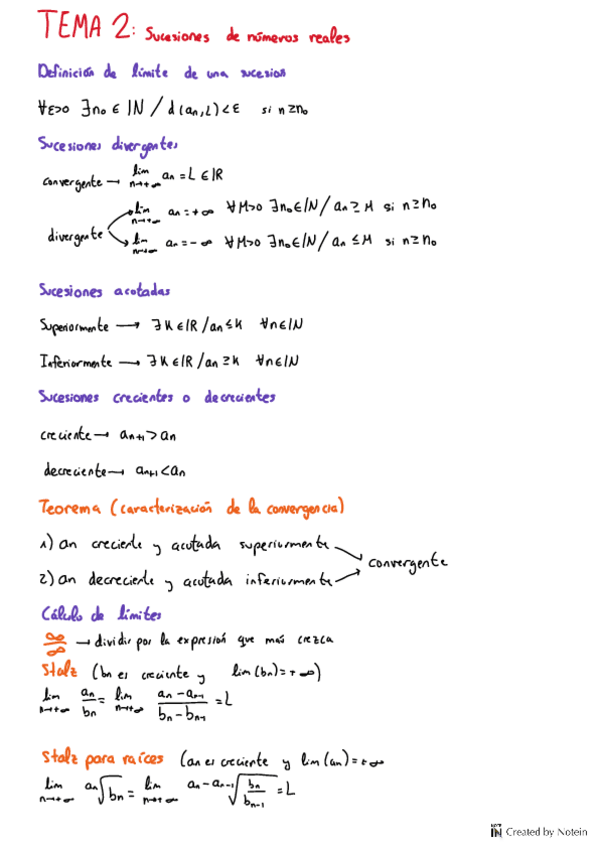 TEMA 2: Sucesiones de números reales
Definición de límite de una sucesión
∀ε>0 ∃n₀ ∈ ℕ / d(aₙ,L)<ε si n≥n₀
Sucesiones divergentes
convergente → lim n→+∞ aₙ = L ∈ ℝ
divergente
lim n→+∞ aₙ = +∞ ∀M>0 ∃n₀∈ℕ / aₙ ≥ M si n≥n₀
lim n→+∞ aₙ = -∞ ∀M>0 ∃n₀∈ℕ / aₙ ≤ M si n≥n₀
Sucesiones acotadas
Superiormente → ∃K∈ℝ / aₙ≤K ∀n∈ℕ
Inferiormente → ∃K∈ℝ / aₙ≥K ∀n∈ℕ
Sucesiones crecientes o decrecientes
creciente → aₙ₊₁ > aₙ
decreciente → aₙ₊₁ < aₙ
Teorema (caracterización de la convergencia)
1) an creciente y acotada superiormente
convergente
2) an decreciente y acotada inferiormente
Cálculo de límites
∞/∞ → dividir por la expresión que más crezca
Stolz (bn es creciente y lim(bn)=+∞)
lim n→+∞ aₙ/bₙ = lim n→+∞ (aₙ-aₙ₋₁)/(bₙ-bₙ₋₁) = L
Stolz para raíces (an es creciente y lim(an)=+∞
lim n→+∞ ᵃⁿ√bₙ = lim n→+∞ ᵃⁿ⁻ᵃⁿ⁻¹√(bₙ/bₙ₋₁) = L
NOTE IN Created by Notein